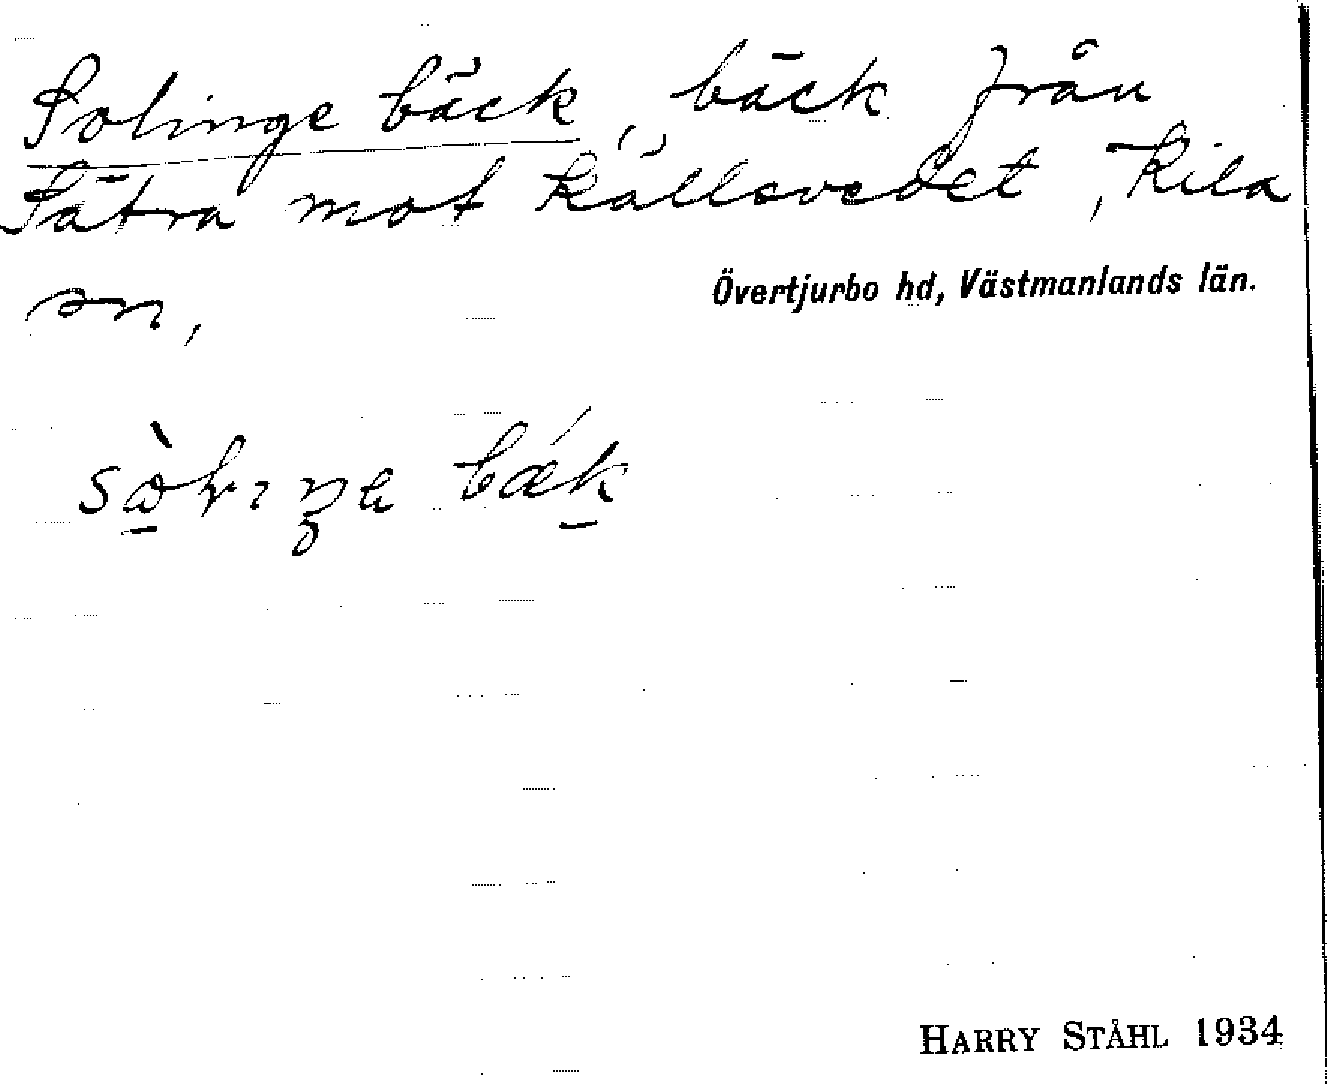 Solinge bäck, bäck från
Sätra mot Källsvedet, Kila
sn,
Övertjurbo hd, Västmanlands län.
bæk
HARRY STÅHL 1934